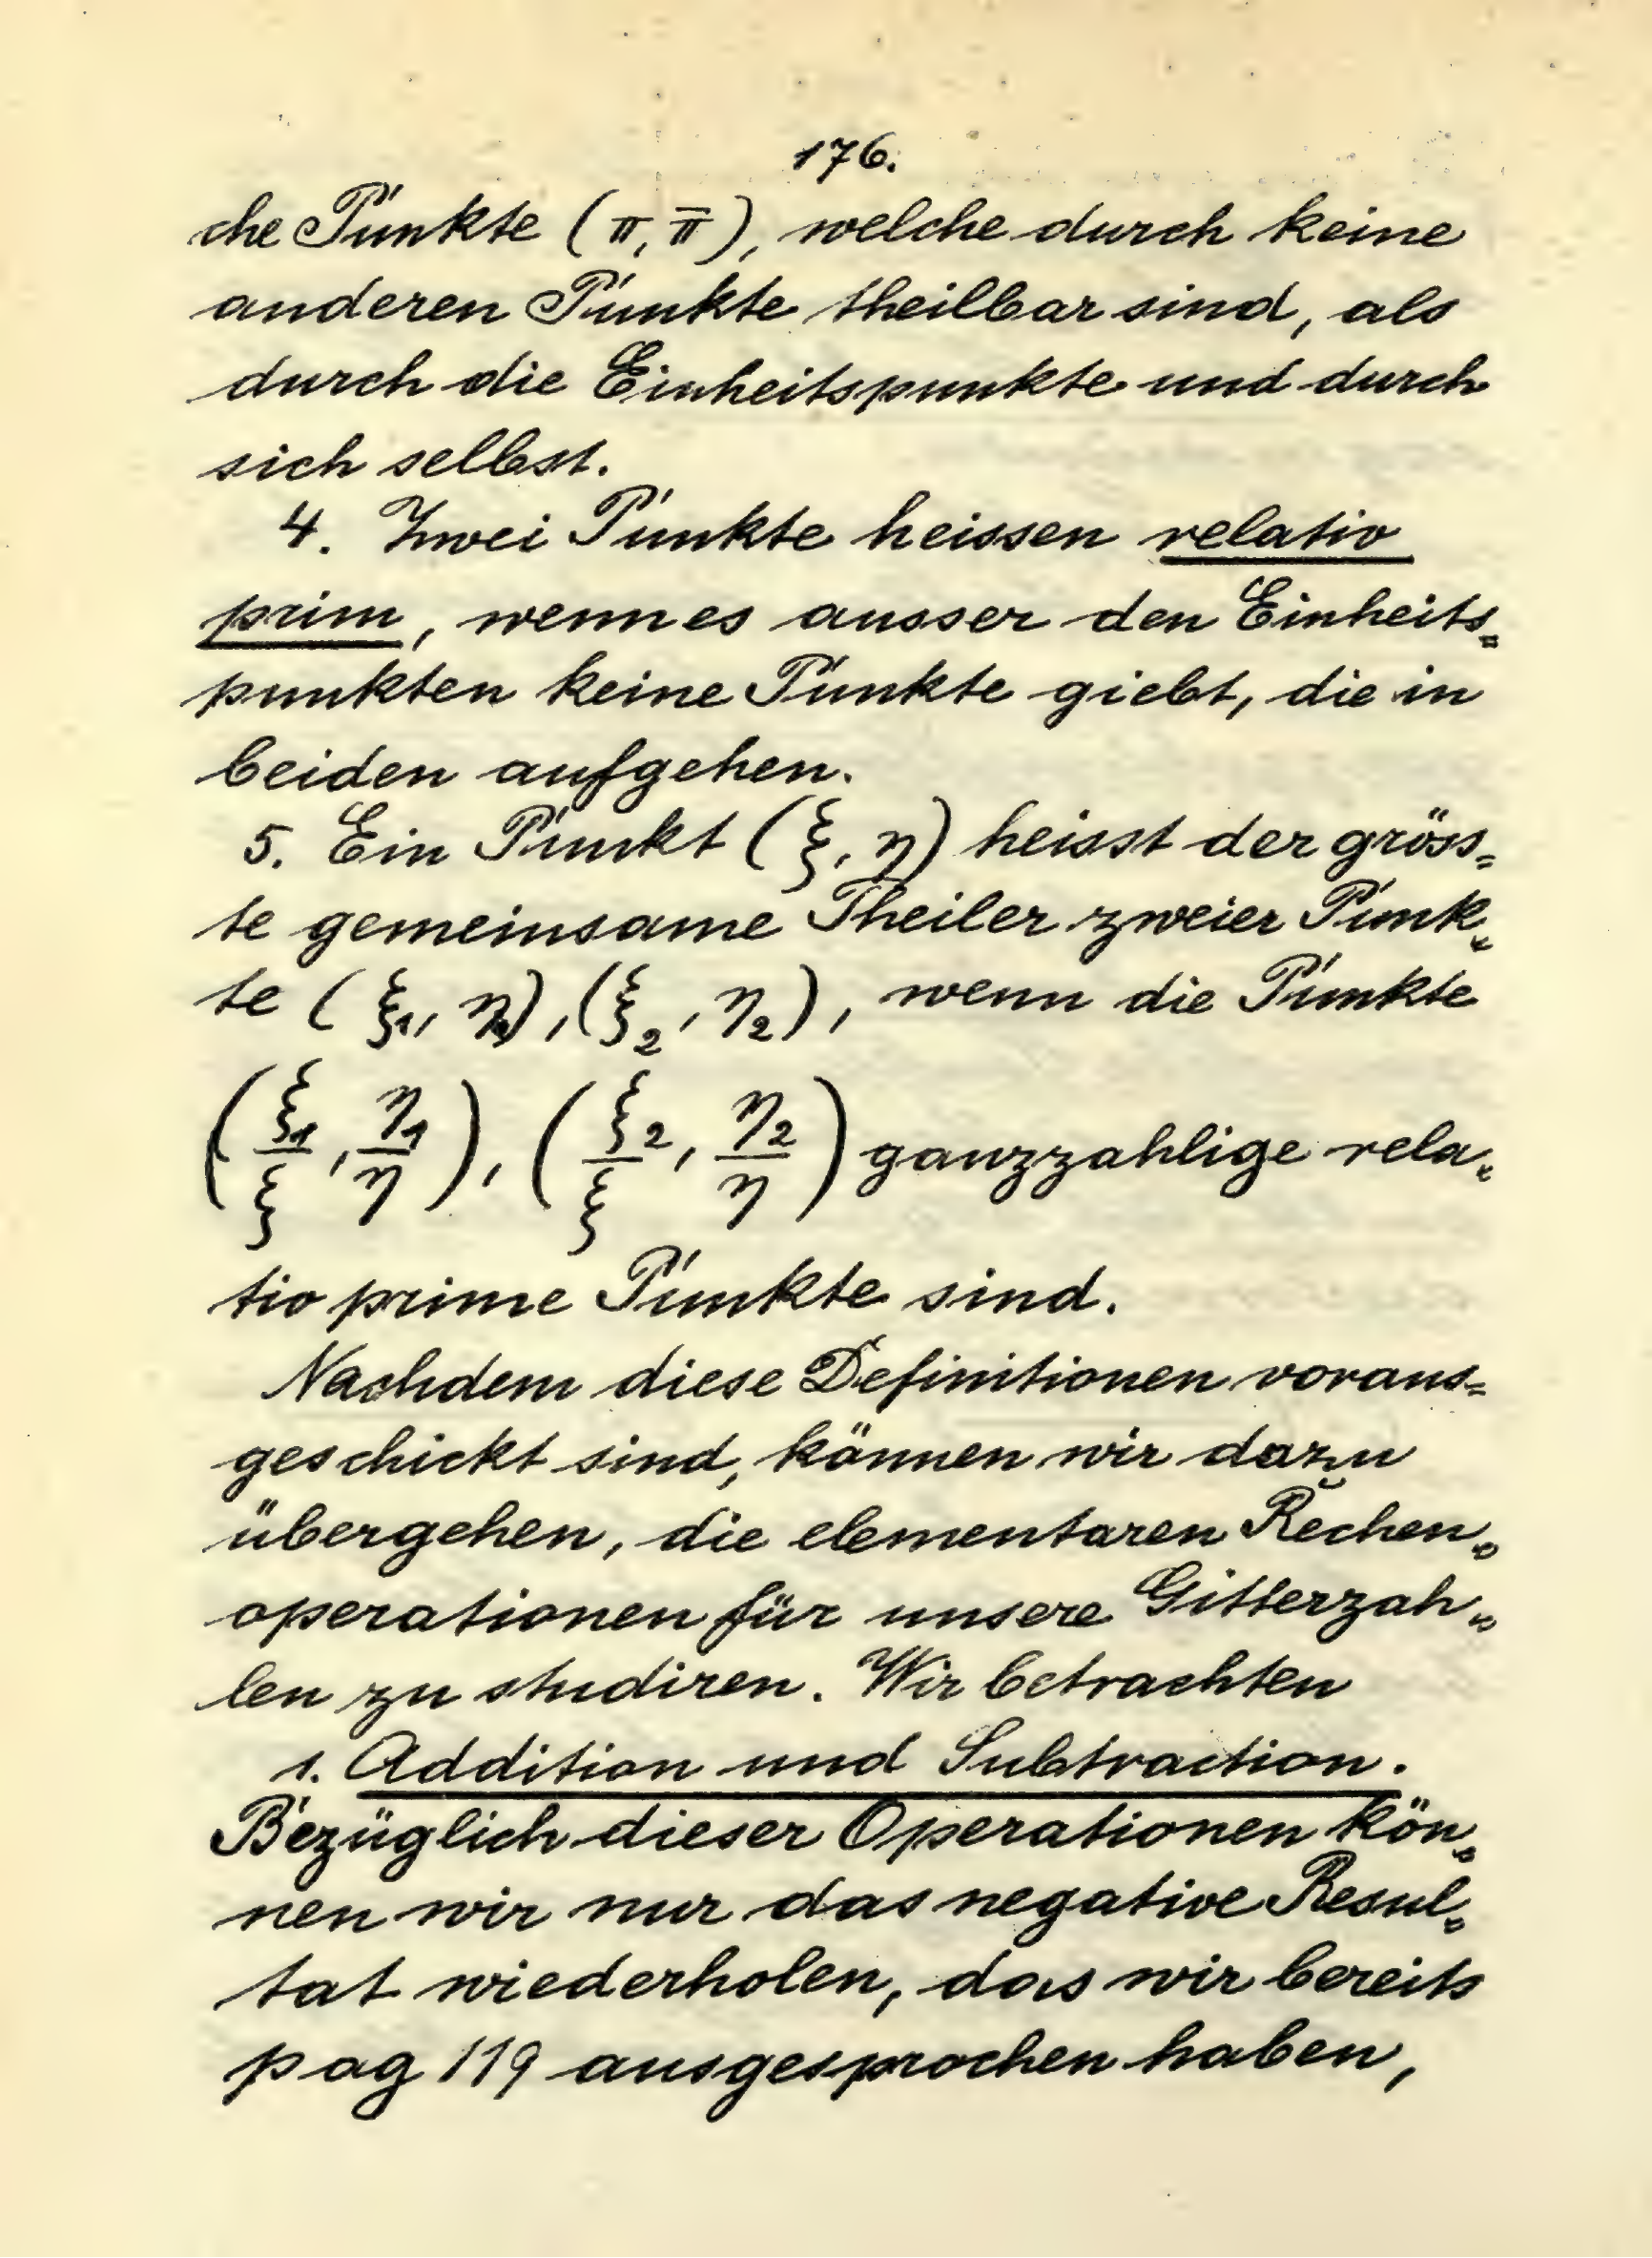 176.
che Punkte (π, π̄), welche durch keine
anderen Punkte theilbar sind, als
durch die Einheitspunkte und durch
sich selbst.
4. Zwei Punkte heissen relativ
prim, wenn es ausser den Einheits=
punkten keine Punkte giebt, die in
beiden aufgehen.
5. Ein Punkt (ξ, η) heisst der gröss=
te gemeinsame Theiler zweier Punk=
te (ξ₁, η₁), (ξ₂, η₂), wenn die Punkte
(ξ₁/ξ, η₁/η), (ξ₂/ξ, η₂/η) ganzzahlige rela=
tiv prime Punkte sind.
Nachdem diese Definitionen voraus=
geschickt sind, können wir dazu
übergehen, die elementaren Rechen=
operationen für unsere Gitterzah=
len zu studiren. Wir betrachten
1. Addition und Subtraction.
Bezüglich dieser Operationen kön=
nen wir nur das negative Resul=
tat wiederholen, das wir bereits
pag 119 ausgesprochen haben,